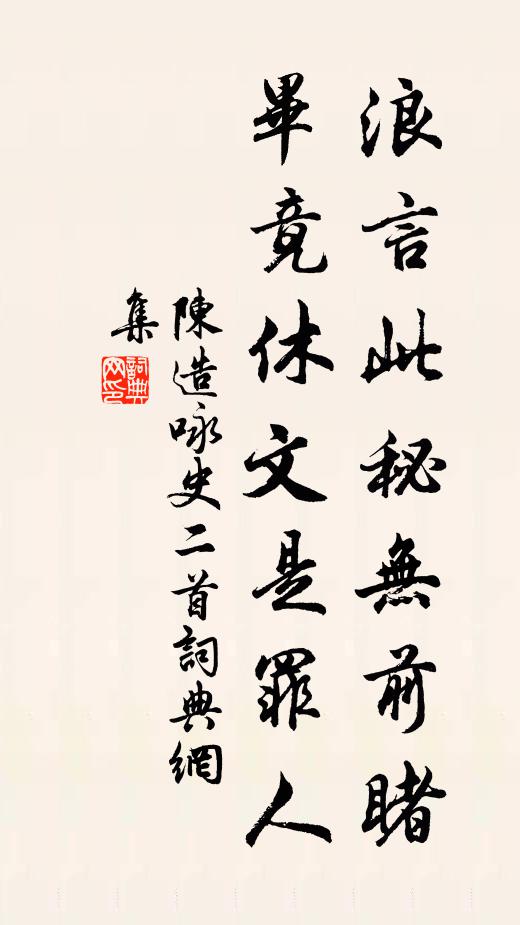 浪言此秘無前睹
畢竟休文是罪人
陳造咏史二首詞典網
集
詞典网印